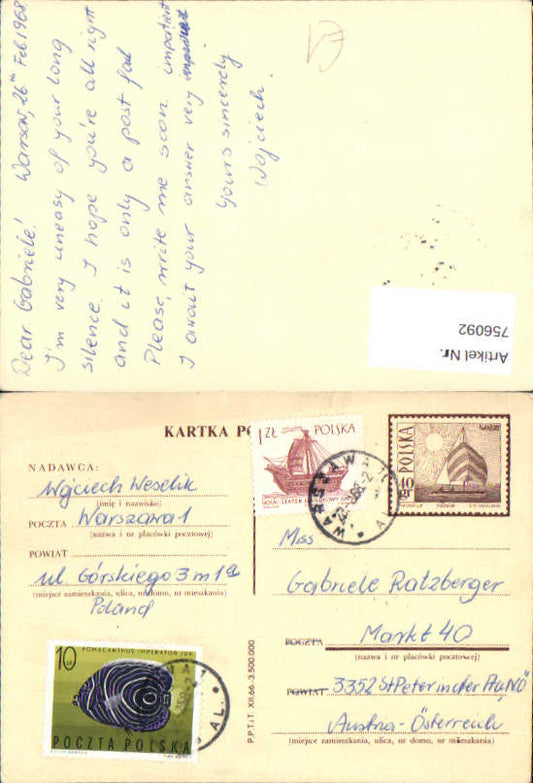 Dear Gabriele! Warsaw, 26th Feb. 1968
I'm very uneasy of your long
silence. I hope you're all right
and it is only a post fail
Please, write me soon. impatient
I await your answer very
Yours sincerely
Wojciech.
Artikel Nr.
756092
KARTKA
NADAWCA:
Wojciech Weselik
(imię i nazwisko)
POCZTA Warszawa 1
(nazwa i nr placówki pocztowej)
POWIAT
ul. Górskiego 3 m 1a
(miejsce zamieszkania, ulica, nr domu, nr mieszkania)
Poland
1 ZŁ POLSKA
POLSKA
40 gr
WARSZAWA 1
Miss
Gabriele Ratzberger
POCZTA Markt 40
(nazwa i nr placówki pocztowej)
POWIAT 3352 St Peter in der Au, NÖ
Austria - Österreich
(miejsce zamieszkania, ulica, nr domu, nr mieszkania)
P.P.T.i T. XII.66 - 3.500.000
POMACANTHUS IMPERATOR JUV.
10 ZŁ
POCZTA POLSKA